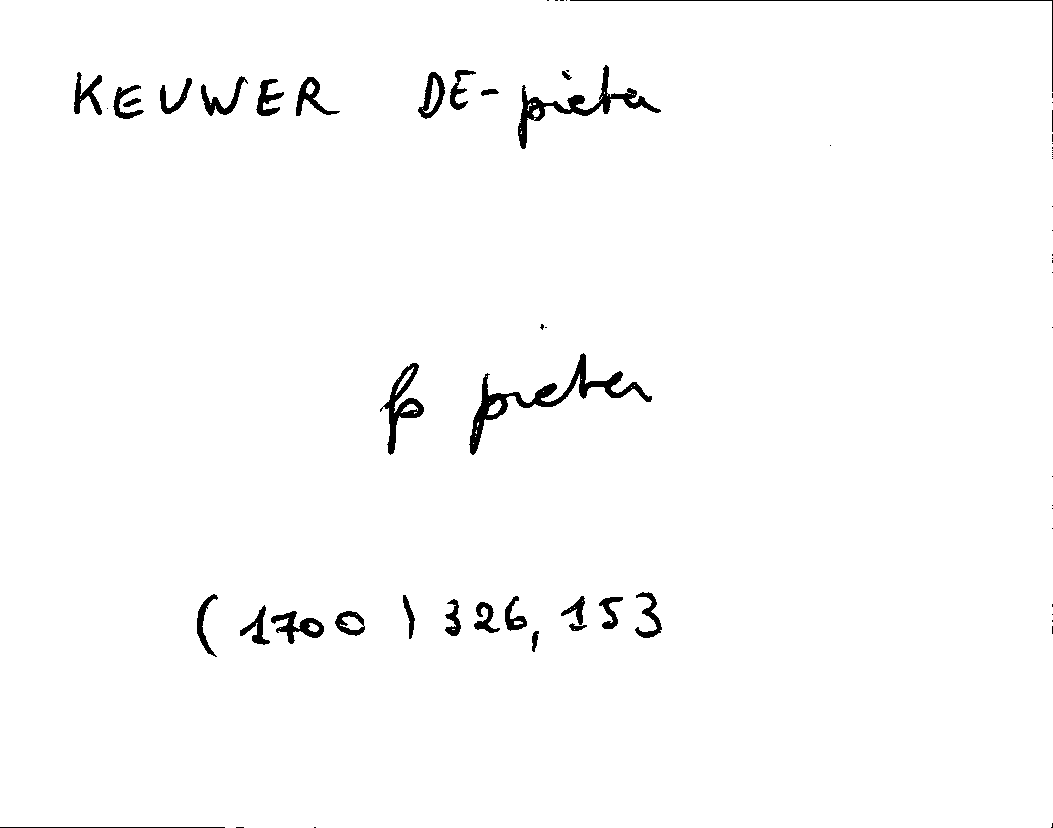 KEUWER DE-pieter
fs pieter
(1700) 326, 153